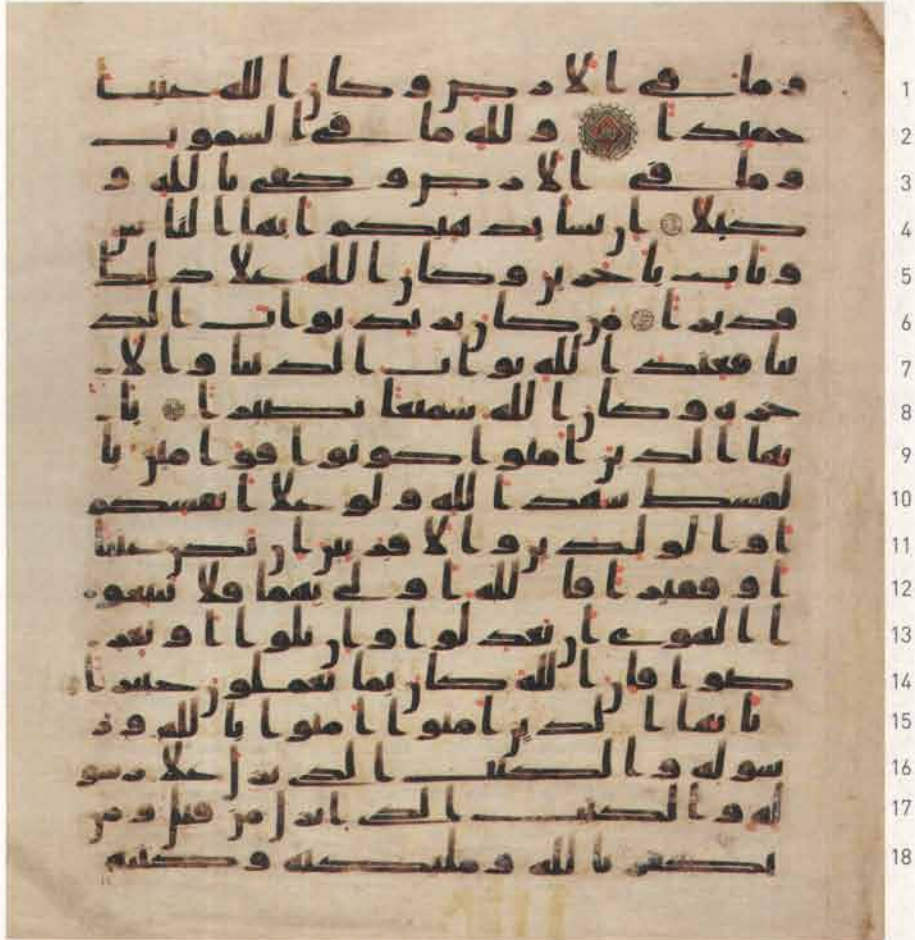 1 وما في الارض وكان الله غنيا
2 حميدا ولله ما في السموت
3 وما في الارض وكفى بالله و
4 كيلا ان يشا يذهبكم ايها الناس
5 ويات باخرين وكان الله علا ذلك
6 قديرا من كان يريد ثواب الد
7 نيا فعند الله ثواب الدنيا والا
8 خرة وكان الله سميعا بصيرا يا
9 يها الذين امنوا كونوا قوامين با
10 لقسط شهدا لله ولو علا انفسكم
11 او الولدين والاقربين ان يكن غنيا
12 او فقيرا فالله اولى بهما فلا تتبعو
13 ا الهوى ان تعدلوا وان تلوا او تعر
14 ضوا فان الله كان بما تعملون خبيرا
15 يايها الذين امنوا امنوا بالله ور
16 سوله والكتب الذي نزل علا رسو
17 له والكتب الذي انزل من قبل ومن
18 يكفر بالله ومليكته وكتبه